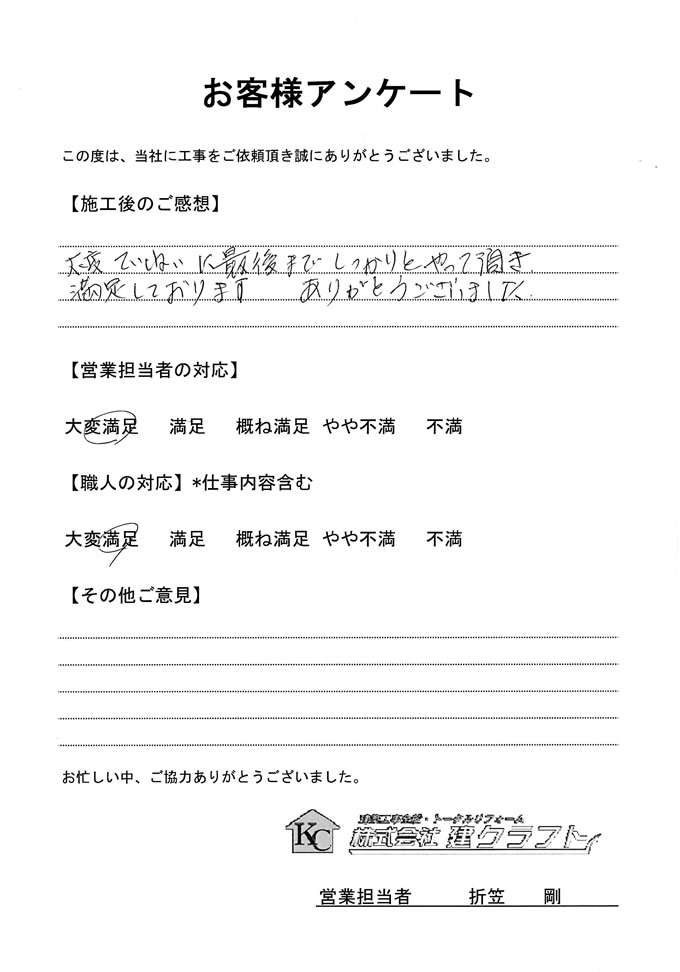 お客様アンケート
この度は、当社に工事をご依頼頂き誠にありがとうございました。
【施工後のご感想】
大変ていねいに最後までしっかりとやって頂き
満足しております　ありがとうございました.
【営業担当者の対応】
大変満足　満足　概ね満足　やや不満　不満
【職人の対応】*仕事内容含む
大変満足　満足　概ね満足　やや不満　不満
【その他ご意見】
お忙しい中、ご協力ありがとうございました。
建築工事全般・トータルリフォーム
KC 株式会社 建クラフト
営業担当者　折笠　剛